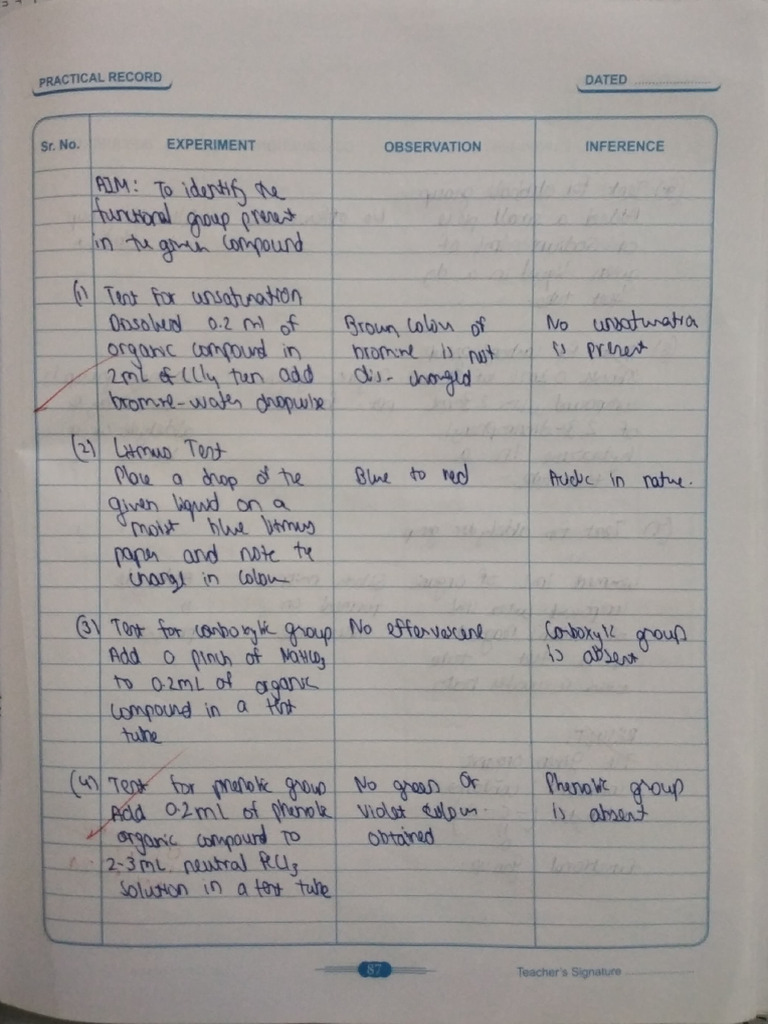 PRACTICAL RECORD
DATED
Sr. No. EXPERIMENT OBSERVATION INFERENCE
AIM: To identify the
functional group present
in the given compound
(1) Test for unsaturation
Dissolved 0.2 ml of Brown colour of No unsaturation
organic compound in bromine is not is present
2mL of CCl4 then add dis- charged
bromine-water dropwise
(2) Litmus Test
Place a drop of the Blue to red Acidic in nature.
given liquid on a
moist blue litmus
paper and note the
change in colour
(3) Test for carboxylic group No effervescene Carboxylic group
Add a pinch of NaHCO3 is absent
to 0.2mL of organic
compound in a test
tube
(4) Test for phenolic group No green or Phenolic group
Add 0.2mL of phenolic violet colour is absent
organic compound to obtained
2-3mL neutral FeCl3
solution in a test tube
87
Teacher's Signature